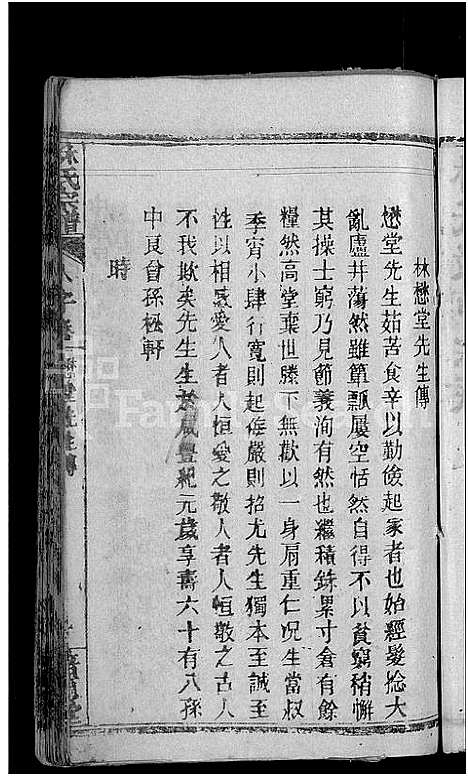 林懋堂先生傳
懋堂先生茹苦食辛以勤儉起家者也始經髮捻大
亂廬井蕩然雖簞瓢屢空恬然自得不以貧窮稍懈
其操士窮乃見節義洵有然也繼積銖累寸倉有餘
糧然高堂棄世膝下無歡以一身肩重仁况生當叔
季宵小肆行寬則起侮嚴則招尤先生獨本至誠至
性以相感愛人者人恒愛之敬人者人恒敬之古人
不我欺矣先生生於咸豐紀元歲享壽六十有八孫
中良曾孫松軒
時
林氏宗譜
懋堂先生傳
FamilySearch